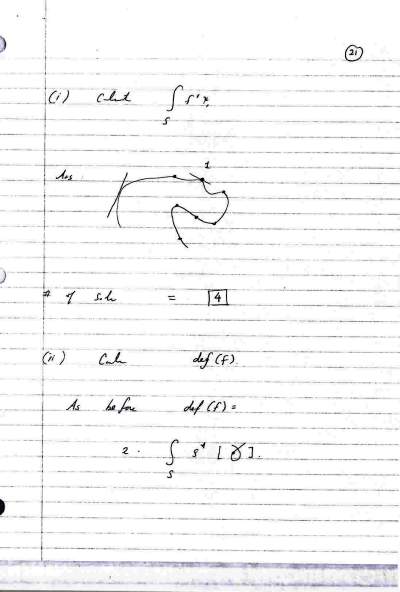 21
(i) Calculate ∫_S s* x.
Ans.
1
# of sols = 4
(ii) Calc def(f).
As before def(f) =
2. ∫_S s* [ ].